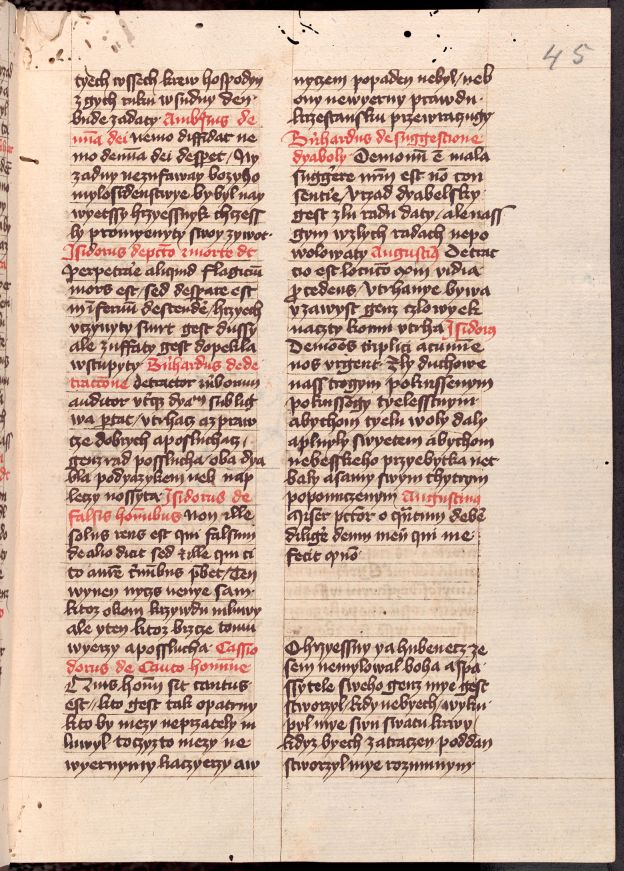 45
tyech wssech krew hospodyn
z gych ruku w sudny den
bude zadaty Ambrosius de
mīa dei nemo diffidat ne
mo de mīa dei despet / Ny
zadny nezufaway bozyho
mylosrdenstwye by byl nay
wyetssy hrzyessnyk chczess
ly promyenyty swoy zywot
Isidorus de pctō
Perpetrāe aliquid flagitiū
mors est / sed despāte est
in īfernū destendē / hrzyech
vczynyty smrt gest dussy
ale zuffaty gest do pekla
wstupyty Bn̄hardus de de
tractione detractor
auditor
/ vtrhacz a
cze dobrych a posluchacz /
genz rad posslucha / oba dya
bla pod yazykem neb nap
leczy nossyta Isidorus de
falsis hoīnibus non ille
solus reus est qui falsum
de alio dicit sed et ille qui ci
to aurē criminibus p̄bet / Ten
wynen nycz nenye sam /
ktoz o kom krzywdu mluwy
ale y ten ktoz brzcze tomu
wyerzy a posslucha Cassio
dorus de Cauto homine
Quis homī sit cautus
est / kto gest tak opatrny
kto by mezy neprzately m
luwyl toczyzto mezy ne
wyernymy kaczyerzy a w
nyczem popaden nebyl / neb
ony newyerny prawdu
krzestansku przewraczugy
Bn̄hardus de suggestione
dyaboly Demonū ē mala
suggēre nr̄m est nō con
sentīe / Vrzad dyabelsky
gest zlu radu daty / ale nass
gym w zlych radach nepo
wolowaty Augustinus Detrac
cio est
p̄cedens / Vtrhanye bywa
v zawyst genz czlowyek
na czty komu vtrha Isidorus
Demōes triplici acumīe
nos vrgent Zly duchowe
nass trogym pokussenym
pokussegy tyelesstnym
abychom tyelu woly daly
a plnyly swyetem abychom
nebesskeho przyebytka net
baly a samy swym chytrym
popomuczenym Augustinus
Miser
diligē deum meū qui me
fecit
O hrzyessny ya hubenecz ze
sem nemylowal boha a spa
ssytele sweho genz mye gest
stworzyl / kdy nebyech / wyku
pyl mye swu swatu krwy /
kdyz byech zatraczen poddan
stworzyl mye rozumnym